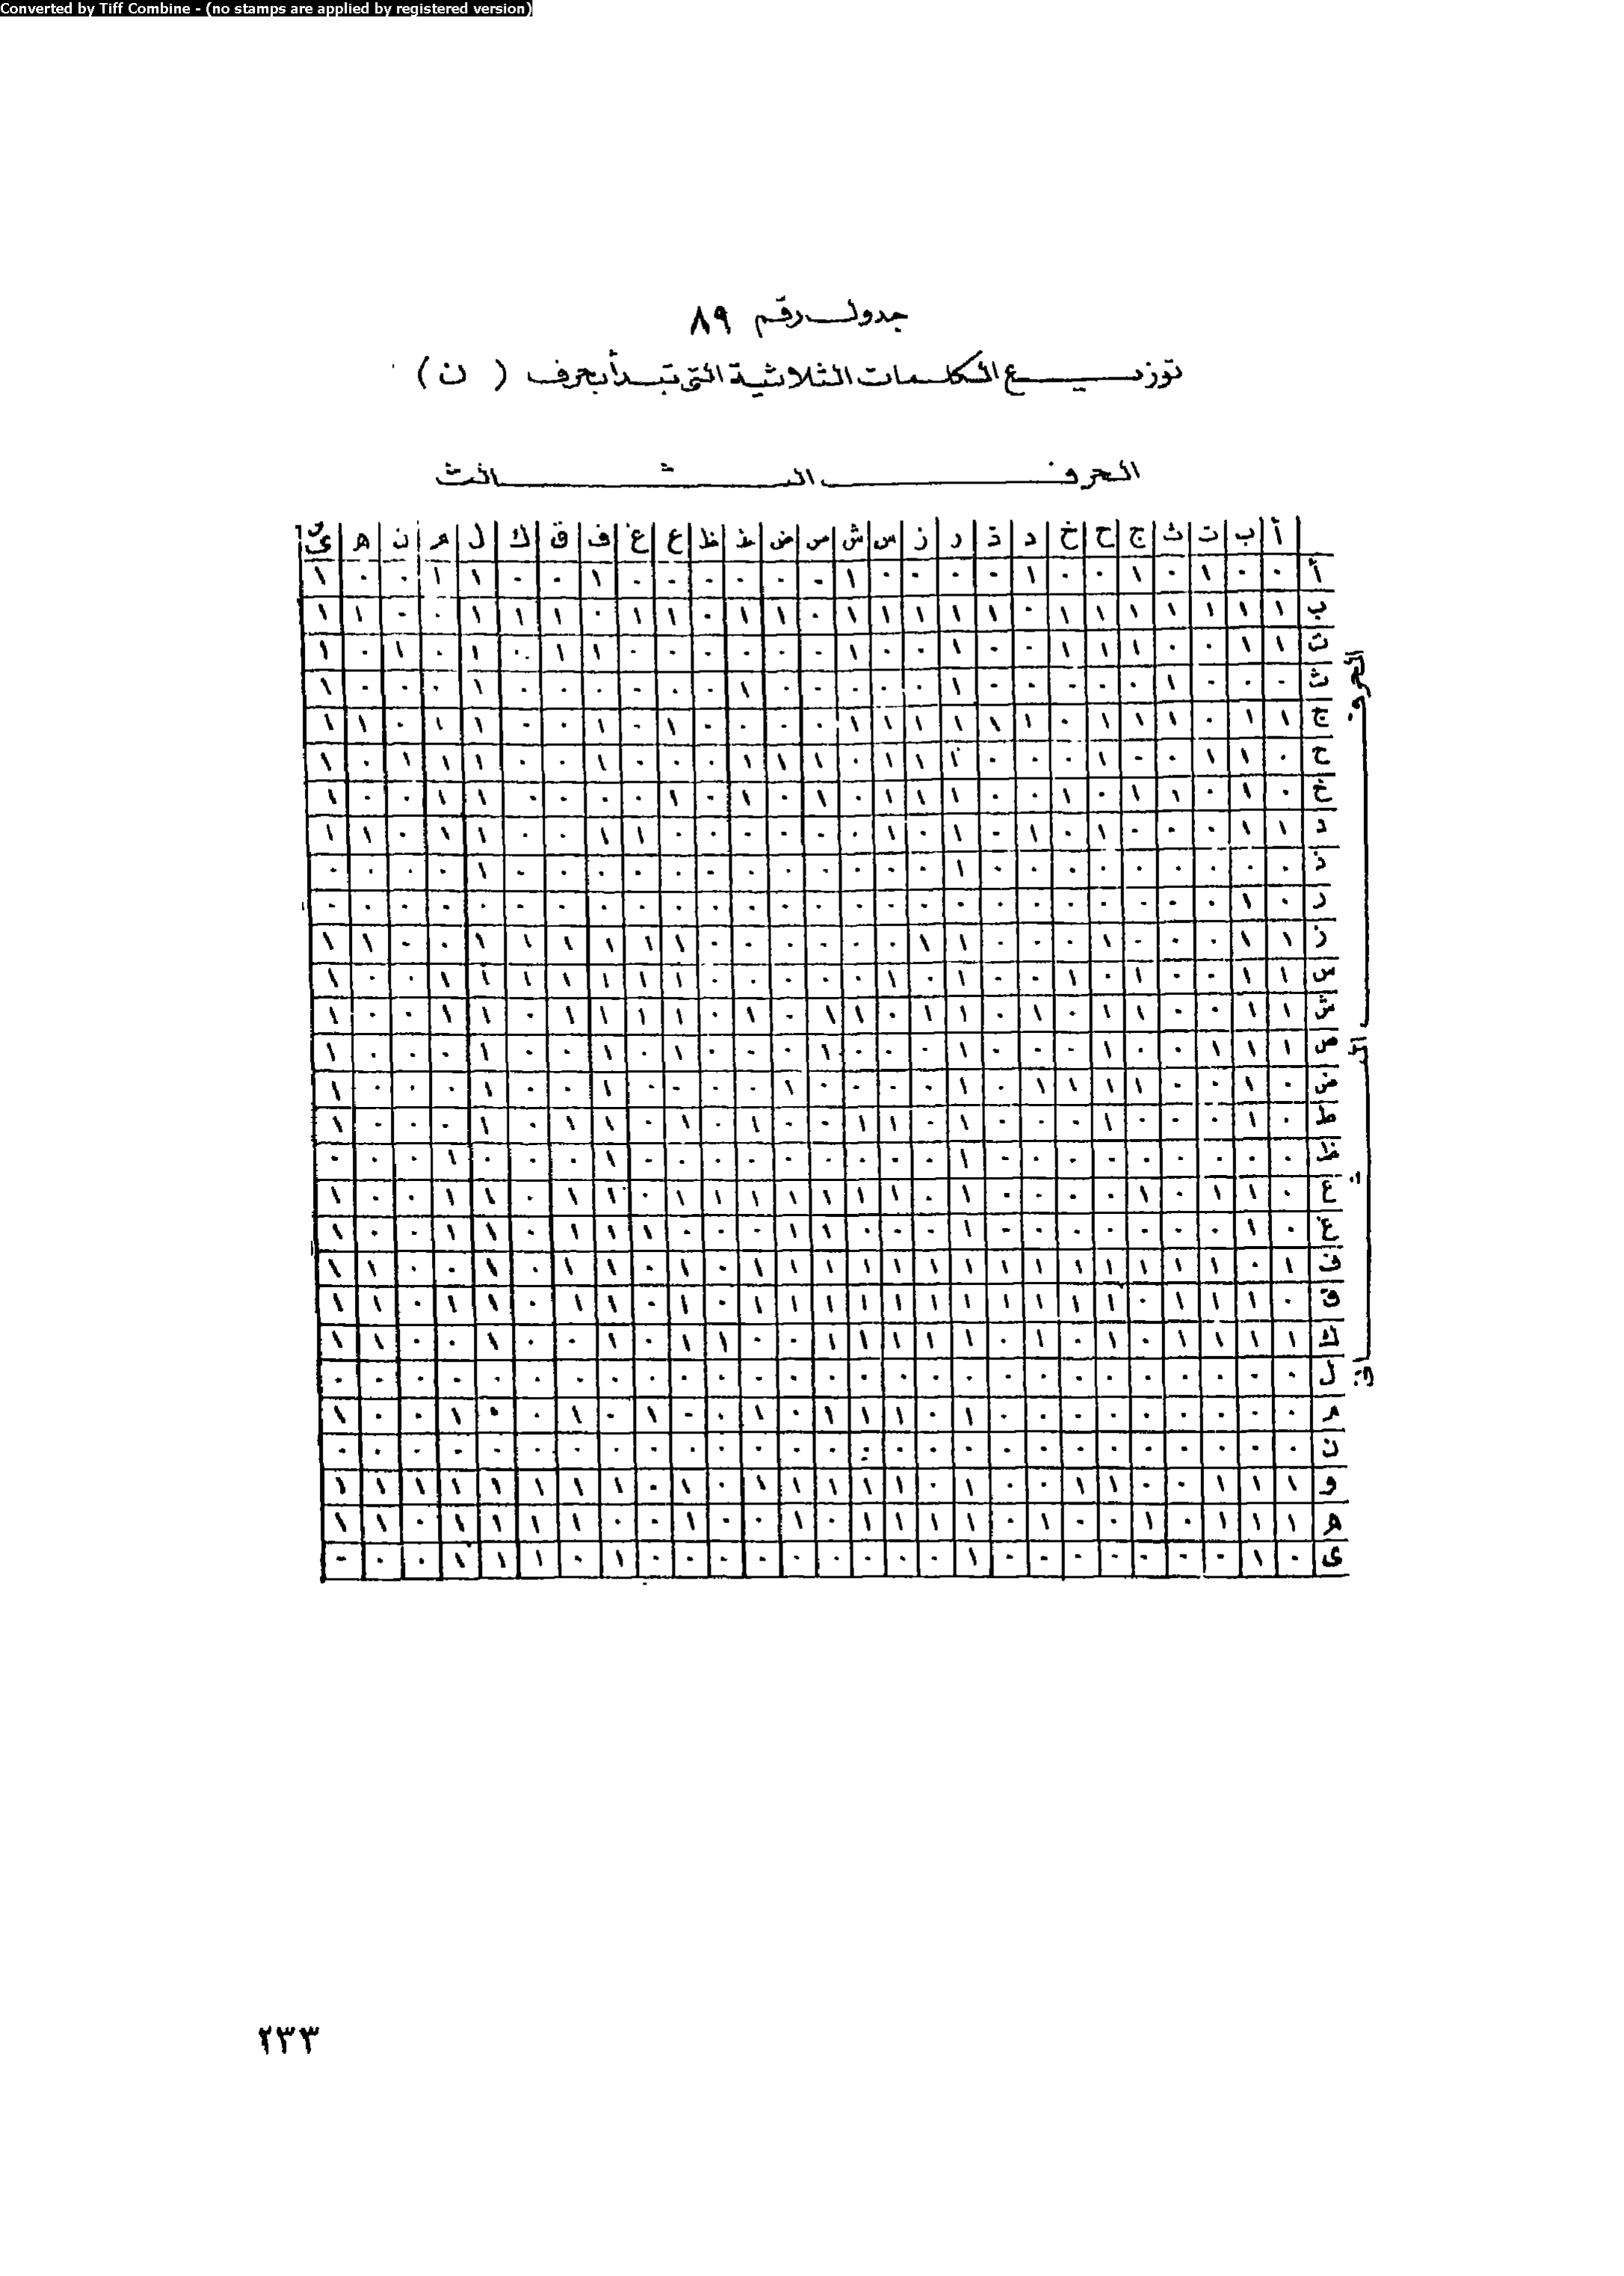 Converted by Tiff Combine - (no stamps are applied by registered version)
جدول رقم ٨٩
توزيع الكلمات الثلاثية التى تبدأ بحرف ( ن )
الحرف الثالث
أ ب ت ث ج ح خ د ذ ر ز س ش ص ض ط ظ ع غ ف ق ك ل م ن ه ى
أ ٠ ٠ ١ ٠ ١ ٠ ٠ ١ ٠ ٠ ٠ ٠ ١ ٠ ٠ ٠ ٠ ٠ ٠ ١ ٠ ٠ ١ ١ ٠ ٠ ١
ب ١ ١ ١ ١ ١ ١ ١ ٠ ١ ١ ١ ١ ١ ٠ ١ ١ ٠ ١ ١ ٠ ١ ١ ١ ٠ ٠ ١ ١
ت ١ ١ ٠ ٠ ١ ١ ١ ٠ ٠ ١ ٠ ٠ ١ ٠ ٠ ٠ ٠ ٠ ٠ ١ ١ ٠ ١ ٠ ١ ٠ ١
ث ٠ ٠ ٠ ١ ٠ ٠ ٠ ٠ ٠ ١ ٠ ٠ ٠ ٠ ٠ ١ ٠ ٠ ٠ ٠ ٠ ٠ ١ ٠ ٠ ٠ ١
ج ١ ١ ٠ ١ ١ ١ ٠ ١ ١ ١ ١ ١ ١ ٠ ٠ ٠ ٠ ١ ٠ ١ ٠ ٠ ١ ١ ٠ ١ ١
ح ٠ ١ ١ ٠ ٠ ١ ٠ ٠ ٠ ١ ١ ١ ٠ ١ ١ ١ ٠ ٠ ٠ ١ ٠ ٠ ١ ١ ١ ٠ ١
خ ٠ ١ ٠ ١ ١ ٠ ١ ٠ ٠ ١ ١ ١ ٠ ١ ٠ ١ ٠ ١ ٠ ٠ ٠ ٠ ١ ١ ٠ ٠ ١
د ١ ١ ٠ ٠ ٠ ١ ٠ ١ ٠ ١ ٠ ١ ٠ ٠ ٠ ٠ ٠ ٠ ١ ١ ٠ ٠ ١ ١ ٠ ١ ١
ذ ٠ ٠ ٠ ٠ ٠ ٠ ٠ ٠ ٠ ١ ٠ ٠ ٠ ٠ ٠ ٠ ٠ ٠ ٠ ٠ ٠ ٠ ١ ٠ ٠ ٠ ٠
ر ٠ ١ ٠ ٠ ٠ ٠ ٠ ٠ ٠ ٠ ٠ ٠ ٠ ٠ ٠ ٠ ٠ ٠ ٠ ٠ ٠ ٠ ٠ ٠ ٠ ٠ ٠
ز ١ ١ ٠ ٠ ٠ ١ ٠ ٠ ٠ ١ ١ ٠ ٠ ٠ ٠ ٠ ٠ ١ ١ ١ ١ ١ ١ ٠ ٠ ١ ١
س ١ ١ ٠ ٠ ١ ٠ ١ ٠ ٠ ١ ٠ ١ ٠ ٠ ٠ ٠ ٠ ١ ١ ١ ١ ١ ١ ١ ٠ ٠ ١
ش ١ ١ ٠ ٠ ١ ١ ٠ ١ ٠ ١ ١ ٠ ١ ١ ٠ ١ ٠ ١ ١ ١ ١ ٠ ١ ١ ٠ ٠ ١
ص ١ ١ ١ ٠ ٠ ١ ٠ ٠ ٠ ١ ٠ ٠ ٠ ١ ٠ ٠ ٠ ١ ٠ ١ ٠ ٠ ١ ٠ ٠ ٠ ١
ض ٠ ١ ٠ ٠ ١ ١ ١ ١ ٠ ١ ٠ ٠ ٠ ٠ ١ ٠ ٠ ٠ ٠ ١ ٠ ٠ ١ ٠ ٠ ٠ ١
ط ٠ ١ ٠ ٠ ٠ ١ ٠ ٠ ٠ ١ ٠ ١ ١ ٠ ٠ ١ ٠ ١ ٠ ١ ١ ٠ ١ ٠ ٠ ٠ ١
ظ ٠ ٠ ٠ ٠ ٠ ٠ ٠ ٠ ٠ ١ ٠ ٠ ٠ ٠ ٠ ٠ ٠ ٠ ٠ ١ ٠ ٠ ٠ ١ ٠ ٠ ٠
ع ٠ ١ ١ ٠ ١ ٠ ٠ ٠ ٠ ١ ٠ ١ ١ ١ ١ ١ ١ ١ ٠ ١ ١ ٠ ١ ١ ٠ ٠ ١
غ ٠ ١ ٠ ٠ ٠ ٠ ٠ ٠ ٠ ١ ٠ ٠ ٠ ١ ١ ٠ ٠ ٠ ١ ١ ١ ٠ ١ ١ ٠ ٠ ١
ف ١ ٠ ١ ١ ١ ١ ١ ١ ١ ١ ١ ١ ١ ١ ١ ١ ٠ ١ ٠ ١ ١ ٠ ١ ٠ ٠ ١ ١
ق ٠ ١ ١ ١ ٠ ١ ١ ١ ١ ١ ١ ١ ١ ١ ١ ١ ٠ ١ ٠ ١ ١ ٠ ١ ١ ٠ ١ ١
ك ١ ١ ١ ١ ٠ ١ ٠ ١ ٠ ١ ١ ١ ١ ١ ٠ ٠ ١ ١ ٠ ١ ٠ ٠ ١ ٠ ٠ ١ ١
ل ٠ ٠ ٠ ٠ ٠ ٠ ٠ ٠ ٠ ٠ ٠ ٠ ٠ ٠ ٠ ٠ ٠ ٠ ٠ ٠ ٠ ٠ ٠ ٠ ٠ ٠ ٠
م ٠ ٠ ٠ ٠ ٠ ٠ ٠ ٠ ٠ ١ ٠ ١ ١ ١ ٠ ١ ٠ ٠ ١ ٠ ١ ٠ ٠ ١ ٠ ٠ ١
ن ٠ ٠ ٠ ٠ ٠ ٠ ٠ ٠ ٠ ٠ ٠ ٠ ٠ ٠ ٠ ٠ ٠ ٠ ٠ ٠ ٠ ٠ ٠ ٠ ٠ ٠ ٠
و ١ ١ ١ ٠ ٠ ١ ١ ٠ ٠ ١ ٠ ١ ١ ١ ١ ١ ٠ ١ ٠ ١ ١ ١ ١ ١ ١ ١ ١
ه ١ ١ ١ ٠ ١ ٠ ٠ ١ ٠ ١ ١ ١ ١ ٠ ١ ٠ ٠ ١ ٠ ٠ ١ ١ ١ ١ ٠ ١ ١
ى ٠ ١ ٠ ٠ ٠ ٠ ٠ ٠ ٠ ١ ٠ ٠ ٠ ٠ ٠ ٠ ٠ ٠ ٠ ١ ٠ ١ ١ ١ ٠ ٠ ٠
الحرف الثانى
٢٣٣